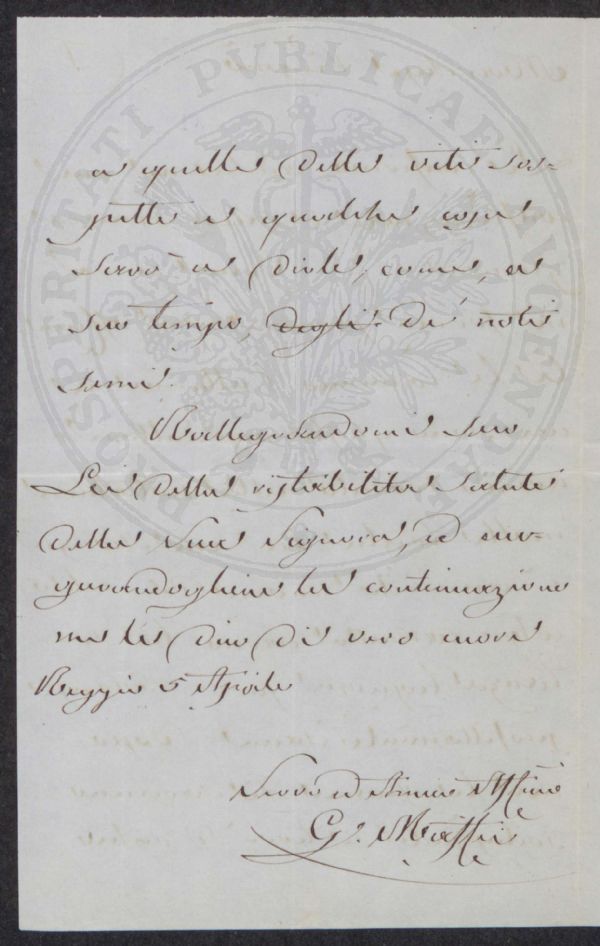 PROSPERITATI PVBLICAE AVGENDAE
a quelle delle viti sos-
pette e qualche cosa
saprò a dirle, come, a
suo tempo, degli de' nati
semi.
Rallegrandomi seco
Lei della ristabilita salute
della Sua Signora, ed au-
gurandogliene la continuazione
me le dico di vero cuore
Reggio 5 Aprile
Servo ed Amico Affmo
G.